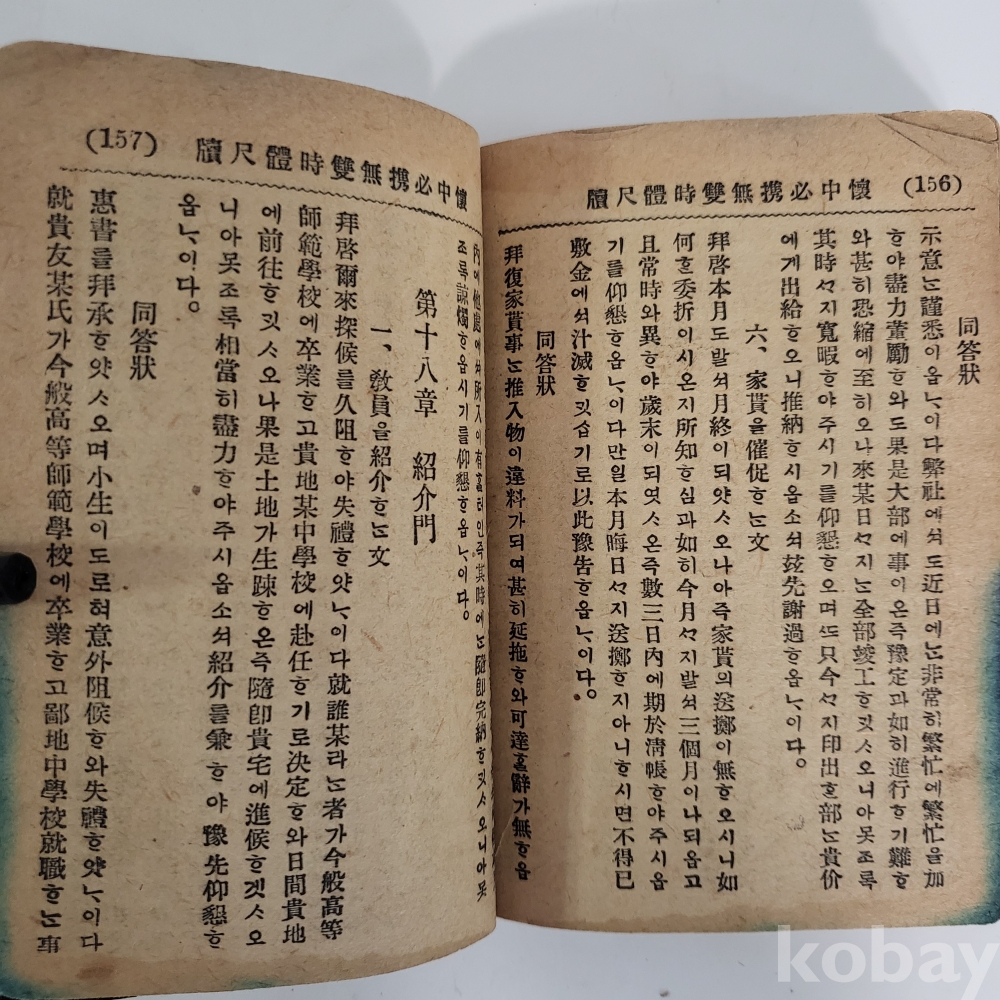 懷中必携無雙時體尺牘
(156)
同答狀
示意ᄂᆞᆫ謹悉이옵ᄂᆞ이다弊社에셔도近日에ᄂᆞᆫ非常히繁忙에繁忙을加
ᄒᆞ야盡力董勵ᄒᆞ와도果是大部에事이온즉豫定과如히進行ᄒᆞ기難ᄒᆞ
와甚히恐縮에至ᄒᆞ오나來某日ᄭᆞ지ᄂᆞᆫ全部竣工ᄒᆞ깃ᄉᆞ오니아못죠록
其時ᄭᆞ지寬暇ᄒᆞ야주시기를仰懇ᄒᆞ오며ᄯᅩ只今ᄭᆞ지印出ᄒᆞᆫ部ᄂᆞᆫ貴价
에게出給ᄒᆞ오니推納ᄒᆞ시옵소셔玆先謝過ᄒᆞ옵ᄂᆞ이다。
六、家貰을催促ᄒᆞᄂᆞᆫ文
拜啓本月도발셔月終이되얏ᄉᆞ오나아즉家貰의送擲이無ᄒᆞ오시니如
何ᄒᆞᆫ委折이시온지所知ᄒᆞ심과如히今月ᄭᆞ지발셔三個月이나되옵고
且常時와異ᄒᆞ야歲末이되엿ᄉᆞ온즉數三日內에期於淸帳ᄒᆞ야주시옵
기를仰懇ᄒᆞ옵ᄂᆞ이다만일本月晦日ᄭᆞ지送擲ᄒᆞ지아니ᄒᆞ시면不得已
敷金에셔汁滅ᄒᆞ깃습기로以此豫告ᄒᆞ옵ᄂᆞ이다。
同答狀
拜復家貰事ᄂᆞᆫ推入物이違料가되여甚히延拖ᄒᆞ와可達ᄒᆞᆯ辭가無ᄒᆞ옵
懷中必携無雙時體尺牘
(157)
內에他處에셔所入이有ᄒᆞᆯ터인즉其時에ᄂᆞᆫ隨卽完納ᄒᆞ깃ᄉᆞ오니아못
죠록諒燭ᄒᆞ옵시기를仰懇ᄒᆞ옵ᄂᆞ이다。
第十八章 紹介門
一、敎員을紹介ᄒᆞᄂᆞᆫ文
拜啓爾來探候를久阻ᄒᆞ야失禮ᄒᆞ얏ᄂᆞ이다就誰某라ᄂᆞᆫ者가今般高等
師範學校에卒業ᄒᆞ고貴地某中學校에赴任ᄒᆞ기로决定ᄒᆞ와日間貴地
에前往ᄒᆞ깃ᄉᆞ오나果是土地가生踈ᄒᆞ온즉隨卽貴宅에進候ᄒᆞ겟ᄉᆞ오
니아못죠록相當히盡力ᄒᆞ야주시옵소셔紹介를兼ᄒᆞ야豫先仰懇ᄒᆞ
옵ᄂᆞ이다。
同答狀
惠書를拜承ᄒᆞ얏ᄉᆞ오며小生이도로혀意外阻候ᄒᆞ와失禮ᄒᆞ얏ᄂᆞ이다
就貴友某氏가今般高等師範學校에卒業ᄒᆞ고鄙地中學校就職ᄒᆞᄂᆞᆫ事
kobay